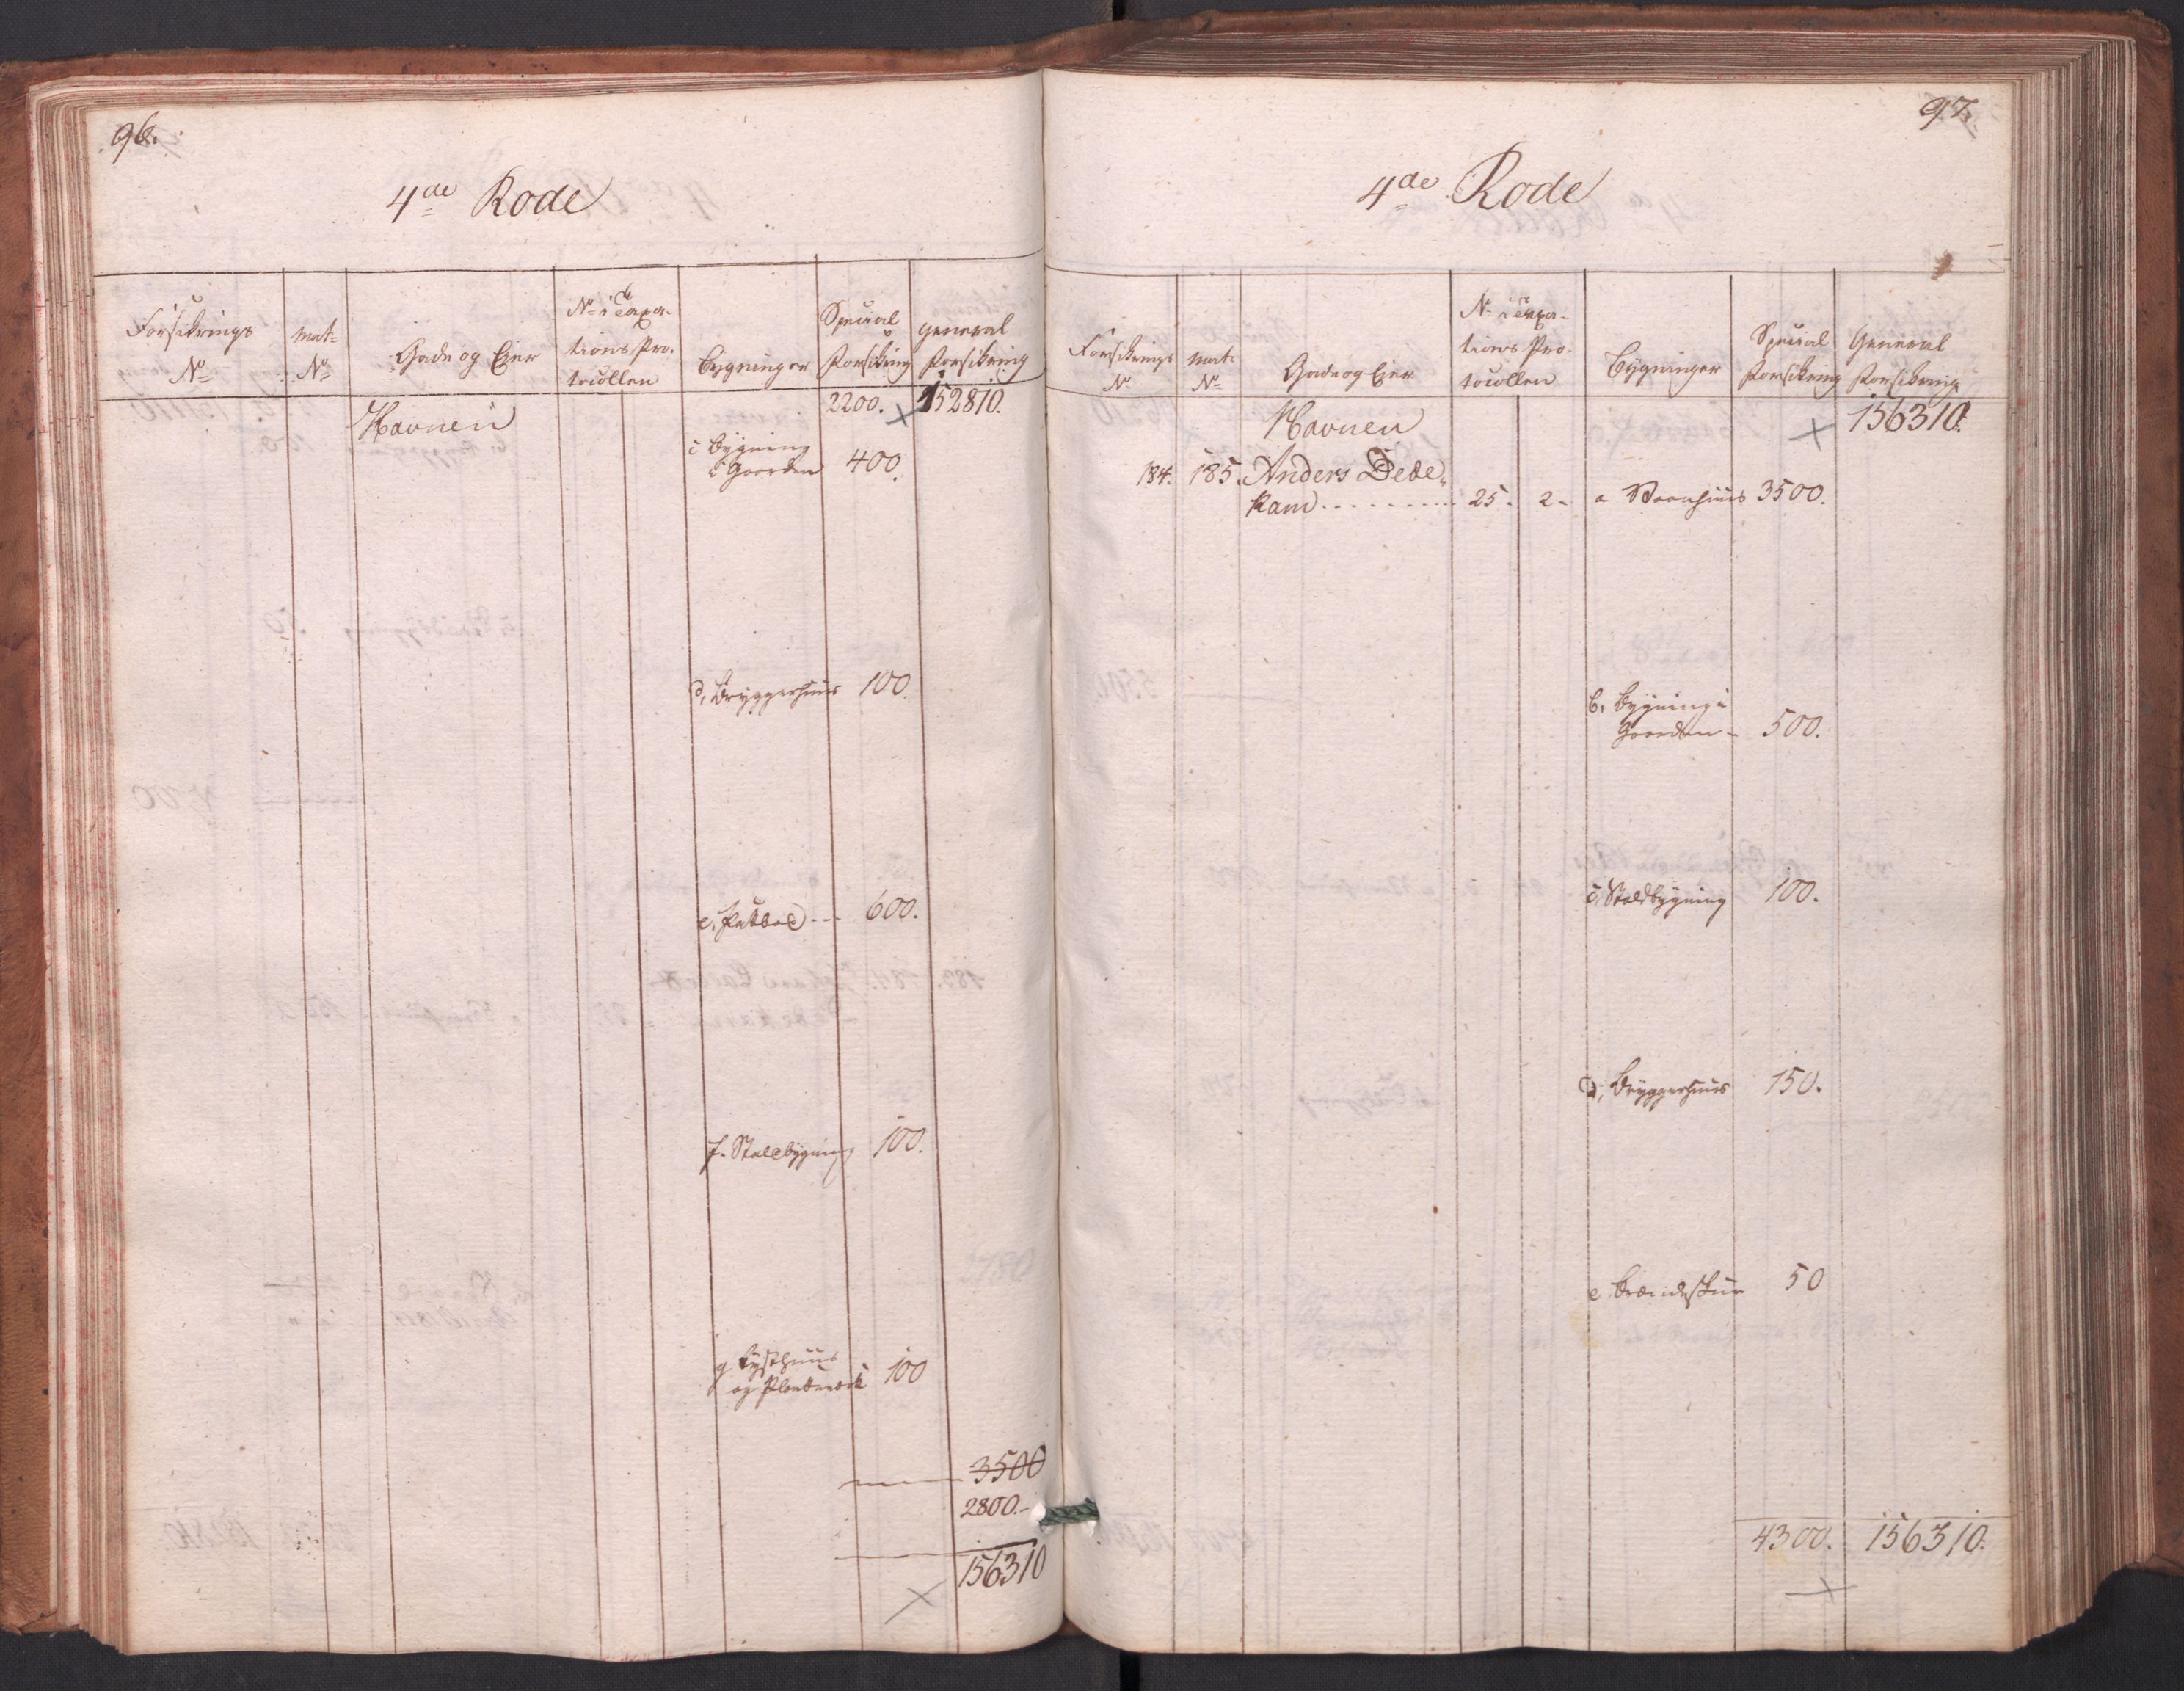 96.
4de Rode
Forsikrings No
Mat: No
Gade og Eier
No i Taxa-
tions Pro-
tocollen
Bygninger
Special Forsikring
General Forsikring
Havnen
2200.
152810.
c Bygning
i Gaarden 400.
d, Bryggerhuus 100.
e, Pakbod --- 600.
f. Staldbygning 100.
g Lysthuus
og Plankeværk 100
3500
2800.-
156310
97.
4de Rode
Forsikrings No
Mat: No
Gade og Eier
No i Taxa-
tions Pro-
tocollen
Bygninger
Special Forsikring
General Forsikring
Havnen
156310.
184. 185. Anders Dede-
kam .......... 25. 2- a Vaanhuus 3500.
b, Bygning i
Gaarden - 500.
c, Staldbygning 100.
d, Bryggerhuus 150.
e Brændeskuur 50
4300. 156310.